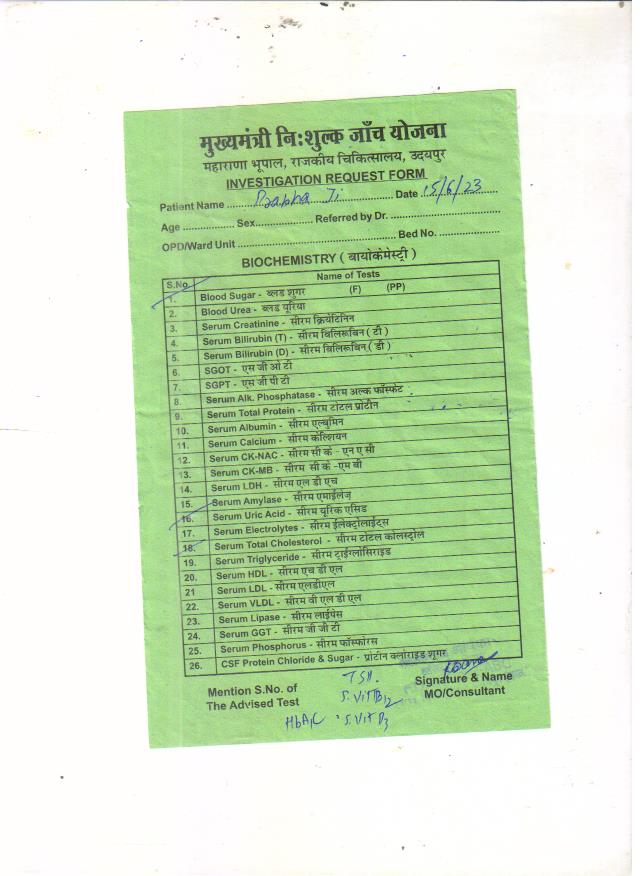 मुख्यमंत्री निःशुल्क जाँच योजना
महाराणा भूपाल, राजकीय चिकित्सालय, उदयपुर
INVESTIGATION REQUEST FORM
Patient Name Prabha Ji Date 15/6/23
Age Sex Referred by Dr.
OPD/Ward Unit Bed No.
BIOCHEMISTRY ( बायोकेमेस्ट्री )
S.No. Name of Tests
1. Blood Sugar - ब्लड शुगर (F) (PP)
2. Blood Urea - ब्लड यूरिया
3. Serum Creatinine - सीरम क्रियेटिनिन
4. Serum Bilirubin (T) - सीरम बिलिरूबिन ( टी )
5. Serum Bilirubin (D) - सीरम बिलिरूबिन ( डी )
6. SGOT - एस जी ओ टी
7. SGPT - एस जी पी टी
8. Serum Alk. Phosphatase - सीरम अल्क फॉस्फेट
9. Serum Total Protein - सीरम टोटल प्रोटीन
10. Serum Albumin - सीरम एल्बुमिन
11. Serum Calcium - सीरम केल्शियन
12. Serum CK-NAC - सीरम सी के - एन ए सी
13. Serum CK-MB - सीरम सी के -एम बी
14. Serum LDH - सीरम एल डी एच
15. Serum Amylase - सीरम एमाईलेज
16. Serum Uric Acid - सीरम यूरिक एसिड
17. Serum Electrolytes - सीरम ईलेक्ट्रोलाईट्स
18. Serum Total Cholesterol - सीरम टोटल कोलस्ट्रोल
19. Serum Triglyceride - सीरम ट्राईग्लोसिराइड
20. Serum HDL - सीरम एच डी एल
21 Serum LDL - सीरम एलडीएल
22. Serum VLDL - सीरम वी एल डी एल
23. Serum Lipase - सीरम लाईपेस
24. Serum GGT - सीरम जी जी टी
25. Serum Phosphorus - सीरम फॉस्फोरस
26. CSF Protein Chloride & Sugar - प्रोटीन क्लोराइड शूगर
Mention S.No. of TSH. Signature & Name
The Advised Test S. Vit B12 MO/Consultant
HbA1C S. Vit D3